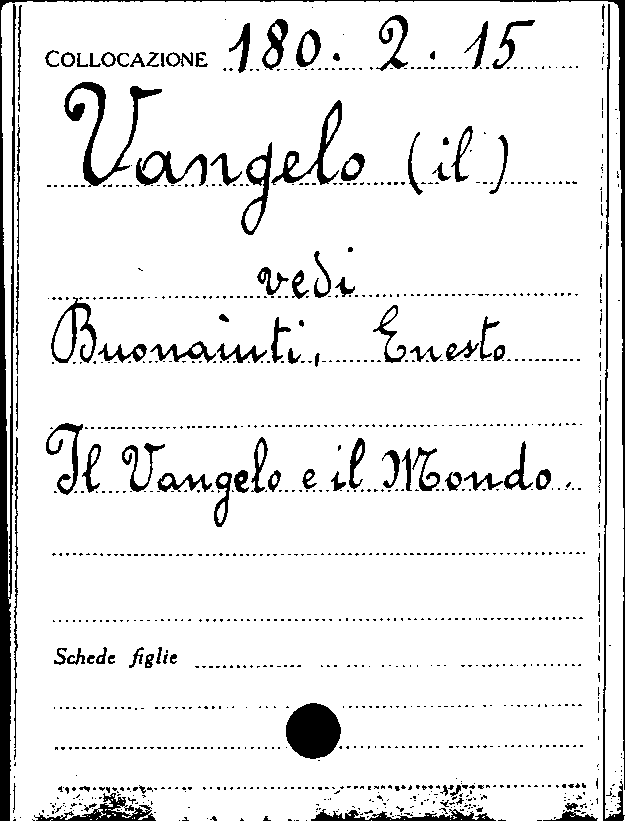 COLLOCAZIONE 180. 2. 15
Vangelo (il)
vedi
Buonaiuti, Enesto
Il Vangelo e il Mondo.
Schede figlie